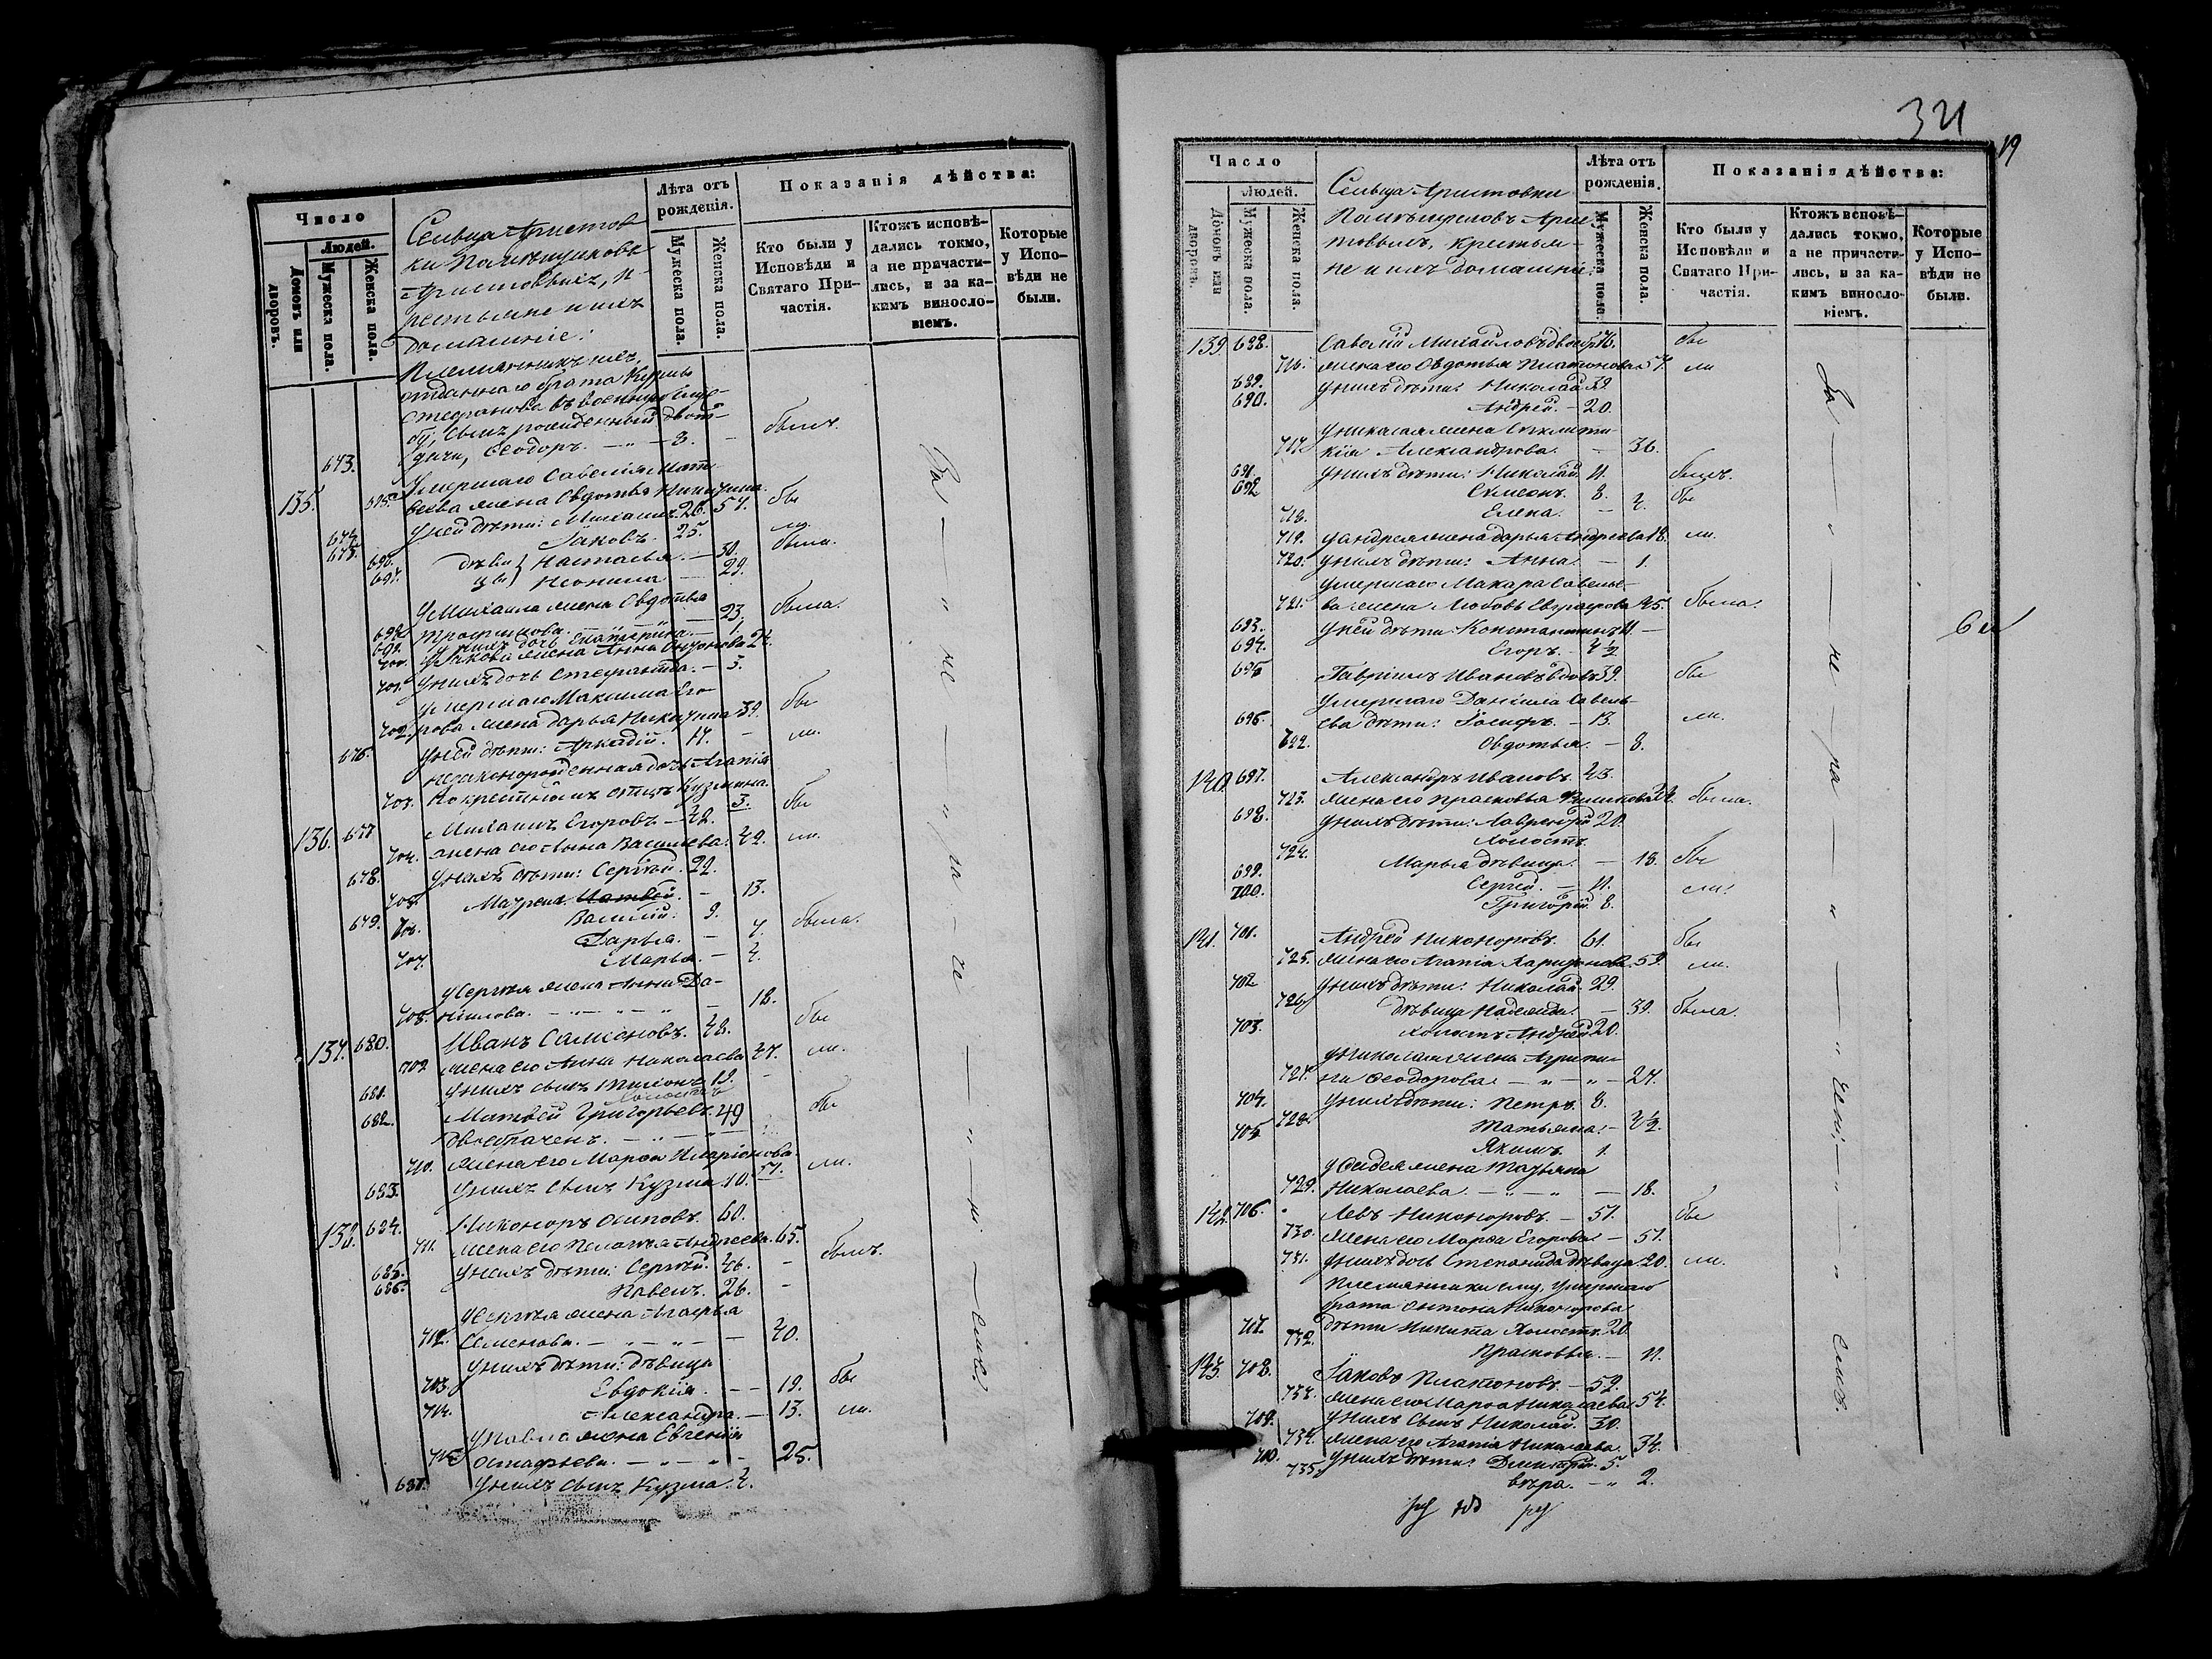 Число
Людей.
Домовъ или дворовъ.
Мужеска пола.
Женска пола.
Сельца Аристов-
ки Помѣщиковъ
Аристовыхъ, к-
рестьяне и ихъ
домашніе:
Лѣта отъ рожденія.
Мужеска пола.
Женска пола.
Показанія дѣйства:
Кто были у Исповѣди и Святаго При-частія.
Ктожъ исповѣ-дались токмо, а не причасти-лись, и за ка-кимъ винсло-віемъ.
Которые у Испо-вѣди не были.
Племянникъ ихъ,
отданнаго брата
Стефанова въ военную служ-
бу, сынъ рожденный
673. Ѳеодоръ. — " — 3. — былъ.
Умершаго Савелія Матв-
135. 695. ѣева жена Овдотья Никитина. 57. бы
674. У ней дѣти: Михаилъ. 26.
675. Іаковъ. 25. ли.
696. дѣви Настасья. — 30. была.
697. цы Неонила — 29.
У Михаила жена Овдотья
698. Трофимова. — " — 23. была.
699. У нихъ дочь Екатерина. — 1.
700. У Іакова жена Анна 24.
701. У нихъ дочь Стефанида. — 3.
Умершаго Максима Его-
702. рова жена Дарья Никитина 39. бы
676. У ней дѣти: Аркадій. 17. — ли.
незаконорожденная дочь Агапія
703. по крестномъ отцѣ Кузмина. 3.
136. 677. Михаилъ Егоровъ. — 42. бы
704. жена его Анна Василиева. 42. ли.
678. У нихъ дѣти: Сергѣй. 22.
705. Матрена. — 13.
679. Василій. 9.
706. Дарья. — 7. была.
707. Марья. — 4.
У Сергѣя жена Анна Да-
708. нилова. — " — " — 18.
137. 680. Иванъ Самсоновъ. 48. бы
709. жена его Анна Николаева 47. ли.
681. У нихъ сынъ 19. —
холостъ
682. Матвей Григорьевъ. 49 бы
двоебраченъ. — " — " —
710. жена его Марфа Иларіонова. 57. ли.
683. У нихъ сынъ Кузма. 10.
138. 684. Никоноръ Осиповъ. 60.
711. жена его Пелагея Андреева. 65. былъ.
685. У нихъ дѣти: Сергѣй. 46. —
686. Павелъ. 26. —
У Сергѣя жена Агафья
712. Семенова. — " — " — 40.
У нихъ дѣти: дѣвица
713. Евдокія. — — 19. бы
714. Александра. — 13. ли.
У Павла жена Евгенія
715. Остафьева. — " — " — 25.
687. У нихъ сынъ Кузма. 2.
За — " — не — " — ра — че — " — ні — емъ.
321
19
Число
Людей.
Домовъ или дворовъ.
Мужеска пола.
Женска пола.
Сельца Аристовки
Помѣщиковъ Арис-
товыхъ, крестья-
не и ихъ домашніе:
Лѣта отъ рожденія.
Мужеска пола.
Женска пола.
Показанія дѣйства:
Кто были у Исповѣди и Святаго При-частія.
Ктожъ исповѣ-дались токмо, а не причасти-лись, и за ка-кимъ винсло-віемъ.
Которые у Испо-вѣди не были.
139. 688. Савелій Михайловъ бы
716. жена его Овдотья Платонова 57. ли
689. У нихъ дѣти: Николай 39.
690. Андрей. — 20.
У Николая жена Сѵнклити-
717. кія Александрова. — 36.
691. У нихъ дѣти: Николай. 11. былъ.
692 Сѵмеонъ. 8. бы
718. Елена. — 2.
719. У Андрея жена Дарья Андреева 18. ли.
720. У нихъ дѣти: Анна. — 1.
Умершаго Макара Савелье-
721. ва жена Любовь Евграфова 45. была.
693. У ней дѣти: Константинъ 11. —
694. Егоръ. — 2 ½
695 Гавріилъ Ивановъ вдовъ 39. бы
Умершаго Даніила Савель-
696. ева дѣти: Іосифъ. — 13. ли.
722. Овдотья. — 8.
140. 697. Александръ Ивановъ. 43.
723. жена его Прасковья была.
698. У нихъ дѣти: Лаврентій 20.
холостъ.
724. Марья дѣвица. — 18. бы
699. Сергей. — 11. ли.
700. Григорій. 8.
141. 701. Андрей Никоноровъ. 61. бы
725. жена его Агапія Харитонова. 59. ли.
702 У нихъ дѣти: Николай. 29.
726. дѣвица Надежда. — 39. была.
703. холостъ Андрей 20.
У Николая жена Агрипи-
727. на Ѳеодорова. — " — " — 27.
704. У нихъ дѣти: Петръ. 8.
728. Татьяна. — 2 ½.
705 Якимъ. 1.
жена Татьяна
729. Николаева. — " — " — 18.
142. 706. Левъ Никоноровъ. — 51. бы
730. жена его Марфа Егорова. — 51.
731. У нихъ дочь Степанида дѣвица 20. ли.
Племянники ему, умершаго
брата Антона Никонорова
707. дѣти Никита холостъ. 20.
732. Прасковья. — 11.
143. 708. Іаковъ Платоновъ. — 52.
733. жена его Марфа Николаева 54.
709. У нихъ сынъ Николай. 30.
734. жена его Агапія Николаева 34.
710. У нихъ дѣти: Димитрій. 5.
735. Вѣра. — " 2.
За — " — не — ра — " — чені — " — емъ.